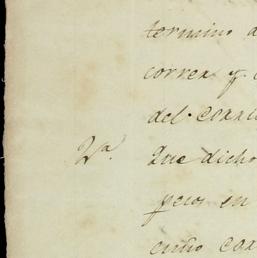 termino d
correr y
del
2ª. Que dicho
pesos en
cuño